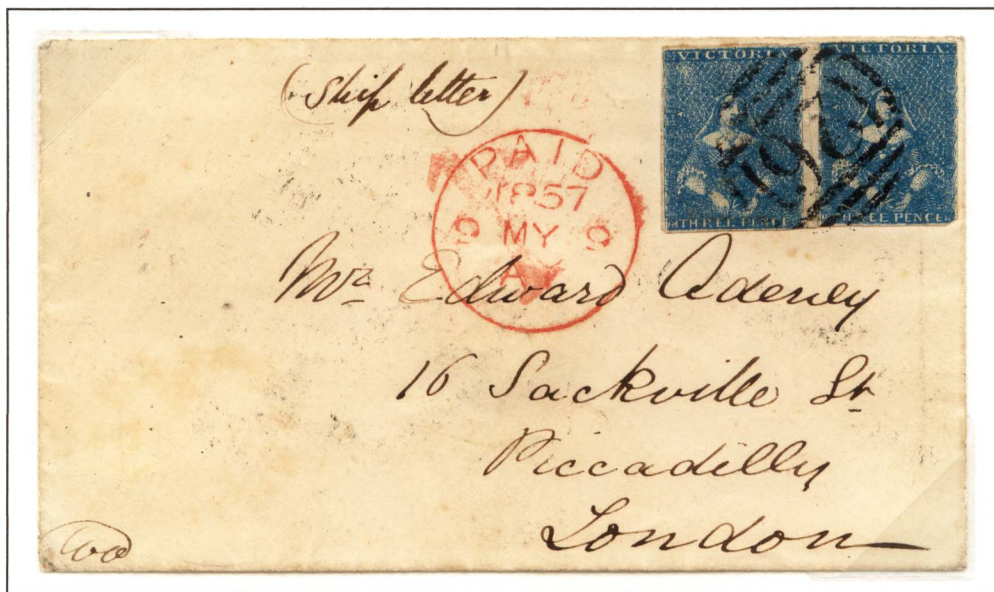 (Ship letter)
VICTORIA VICTORIA
THREE PENCE THREE PENCE
PAID
1857
9 MY 9
Mr Edward Adeney
16 Sackville St
Piccadilly
London